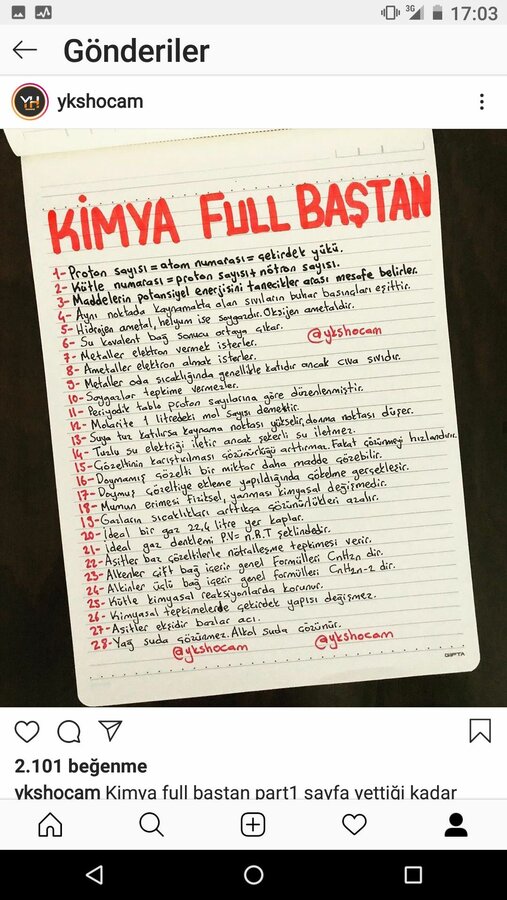 3G 17:03
Gönderiler
ykshocam
KİMYA FULL BAŞTAN
1- Proton sayısı = atom numarası = çekirdek yükü.
2- Kütle numarası = proton sayısı + nötron sayısı.
3- Maddelerin potansiyel enerjisini tanecikler arası mesafe belirler.
4- Aynı noktada kaynamakta olan sıvıların buhar basınçları eşittir.
5- Hidrojen ametal, helyum ise soygazdır. Oksijen ametaldir.
6- Su kovalent bağ sonucu ortaya çıkar.
@ykshocam
7- Metaller elektron vermek isterler.
8- Ametaller elektron almak isterler.
9- Metaller oda sıcaklığında genellikle katıdır ancak cıva sıvıdır.
10- Soygazlar tepkime vermezler.
11- Periyodik tablo proton sayılarına göre düzenlenmiştir.
12- Molarite 1 litredeki mol sayısı demektir.
13- Suya tuz katılırsa kaynama noktası yükselir, donma noktası düşer.
14- Tuzlu su elektriği iletir ancak şekerli su iletmez.
15- Çözeltinin karıştırılması çözünürlüğü arttırmaz. Fakat çözünmeyi hızlandırır.
16- Doymamış çözelti bir miktar daha madde çözebilir.
17- Doymuş çözeltiye ekleme yapıldığında çökelme gerçekleşir.
18- Mumun erimesi fiziksel, yanması kimyasal değişmedir.
19- Gazların sıcaklıkları arttıkça çözünürlükleri azalır.
20- İdeal bir gaz 22,4 litre yer kaplar.
21- İdeal gaz denklemi P.V = n.R.T şeklindedir.
22- Asitler baz çözeltilerle nötralleşme tepkimesi verir.
23- Alkenler çift bağ içerir genel formülleri CnH2n dir.
24- Alkinler üçlü bağ içerir genel formülleri CnH2n-2 dir.
25- Kütle kimyasal reaksiyonlarda korunur.
26- Kimyasal tepkimelerde çekirdek yapısı değişmez.
27- Asitler ekşidir bazlar acı.
28- Yağ suda çözünmez. Alkol suda çözünür.
@ykshocam @ykshocam
GIPTA
2.101 beğenme
ykshocam Kimya full baştan part1 sayfa yettiği kadar